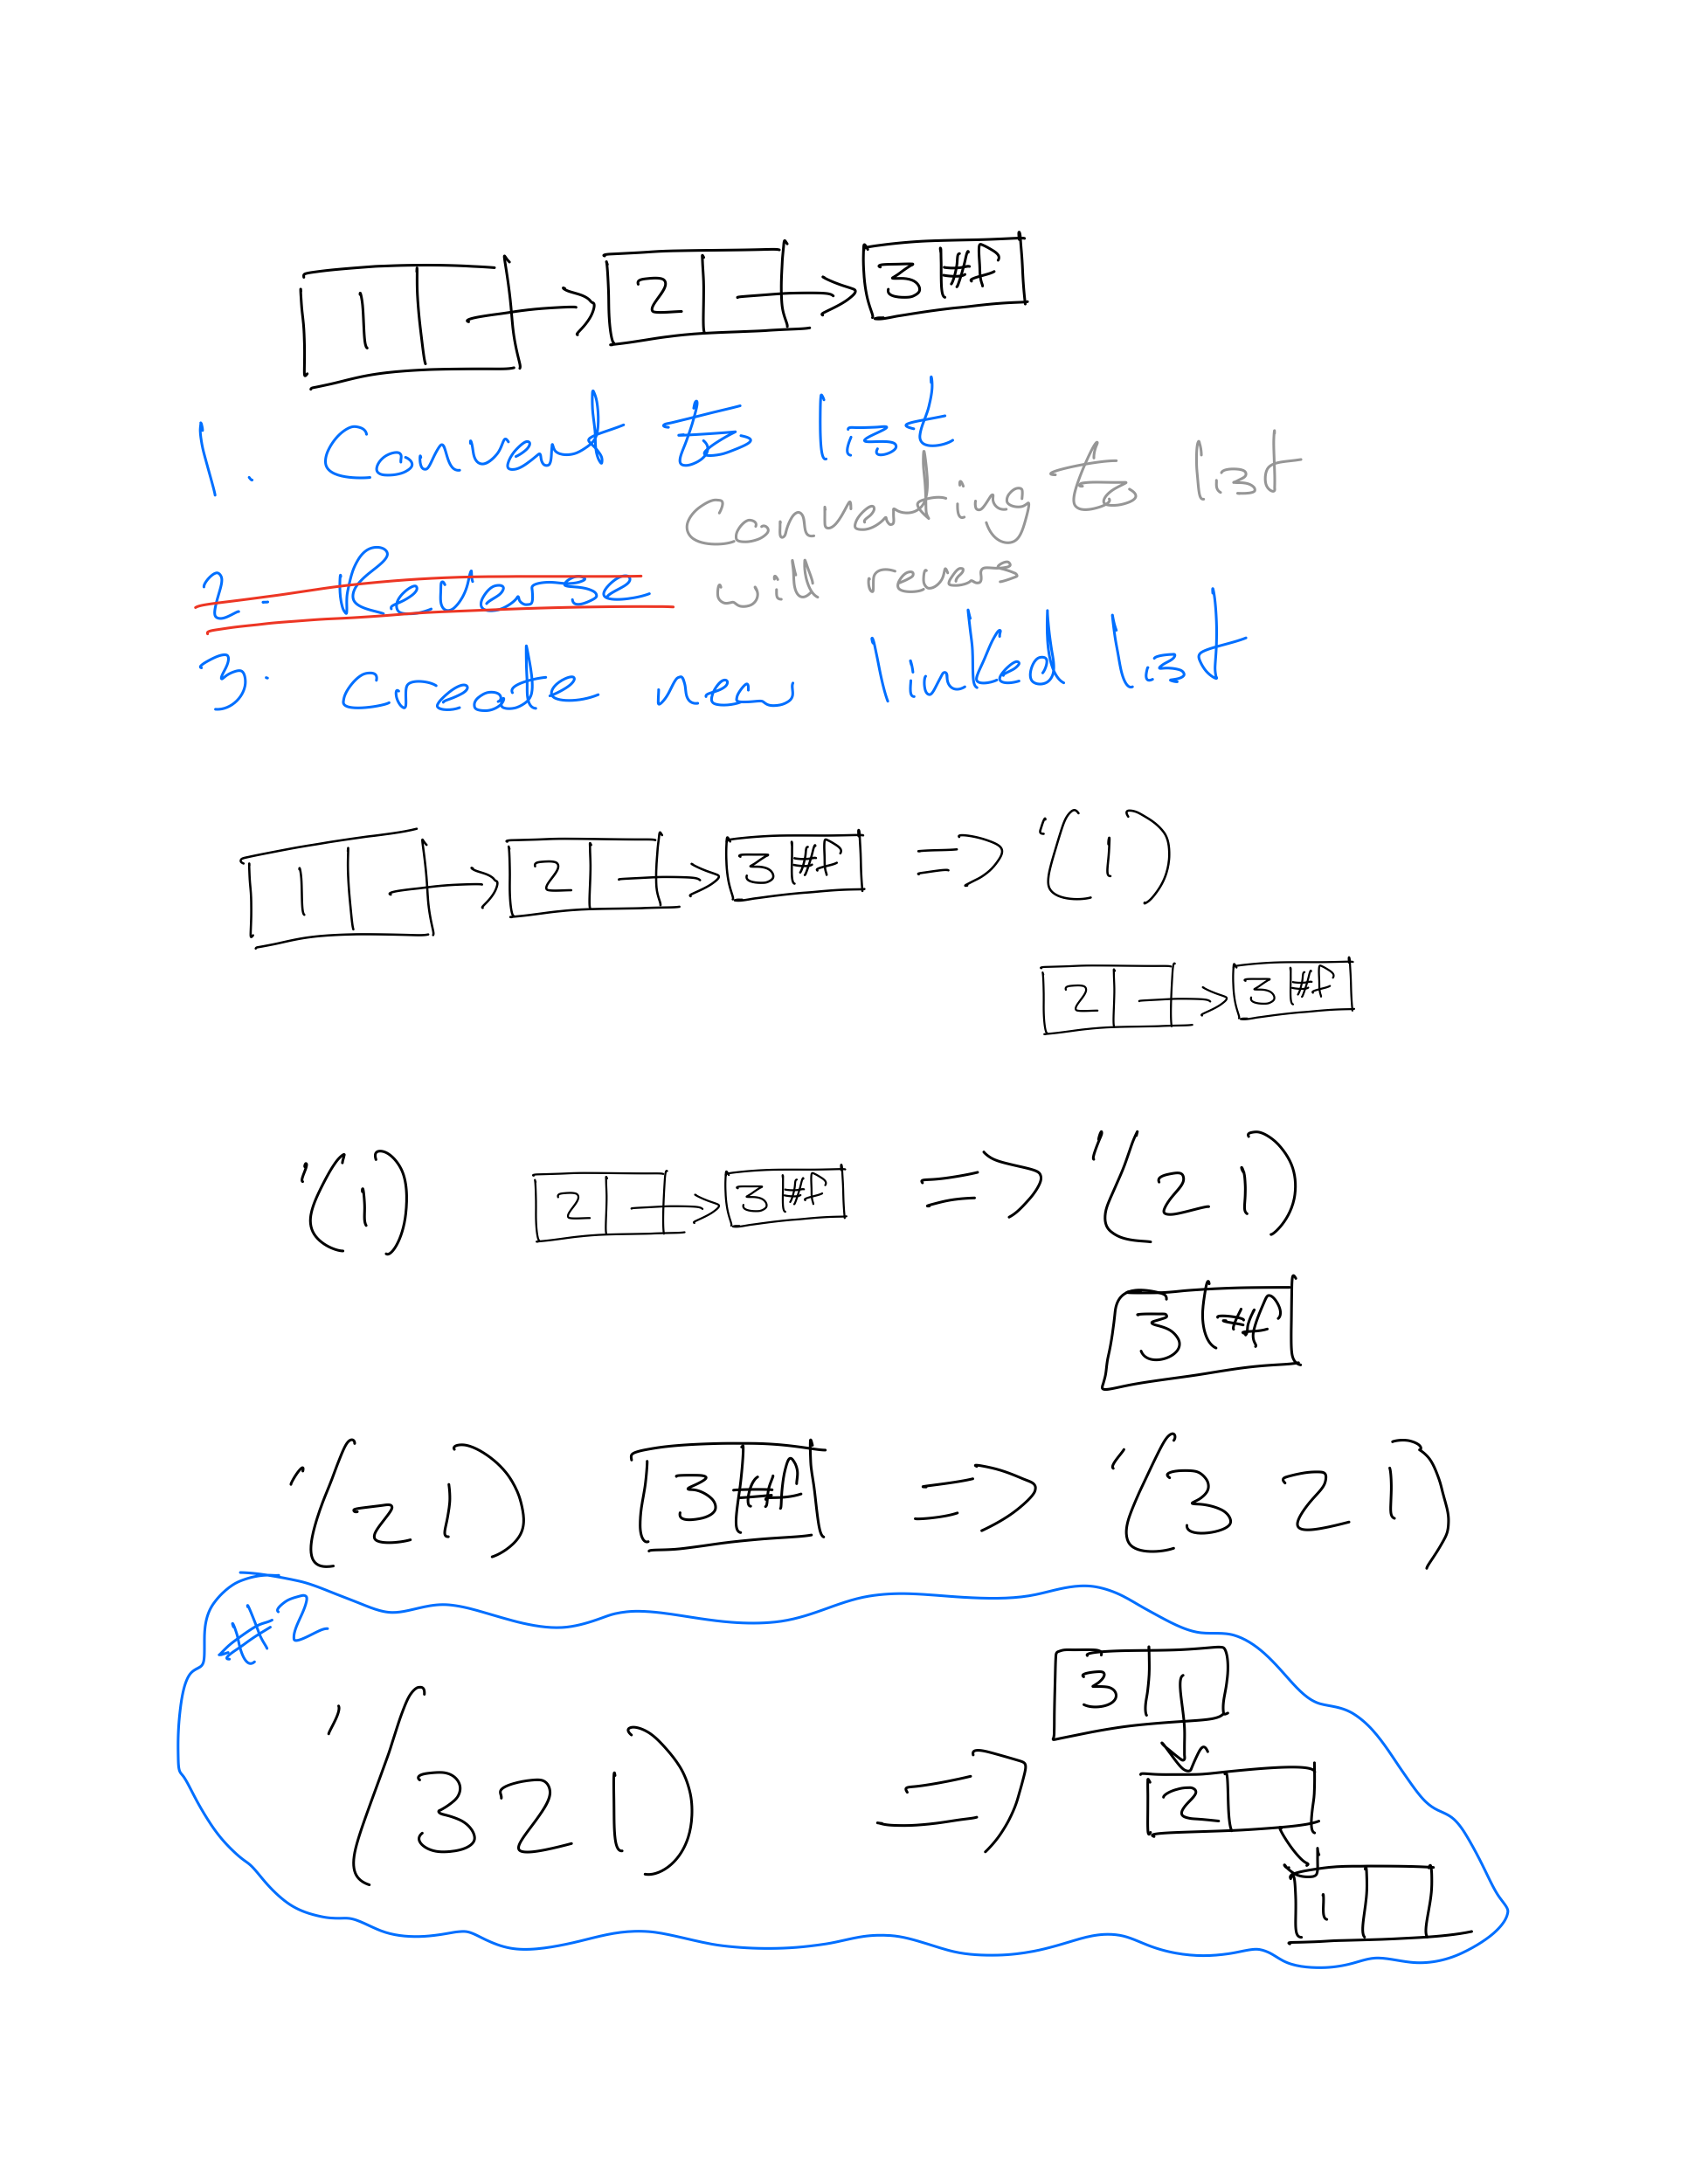 1 2 3 #f
1. Convert to list
Converting to list
will revers
2. Reverse
3. create new linked list
1 2 3 #f => '(1)
2 3 #f
'(1) 2 3 #f => '(2 1)
3 #f
'(2 1) 3 #f => '(3 2 1)
#2
3
'(3 2 1) => 2
1